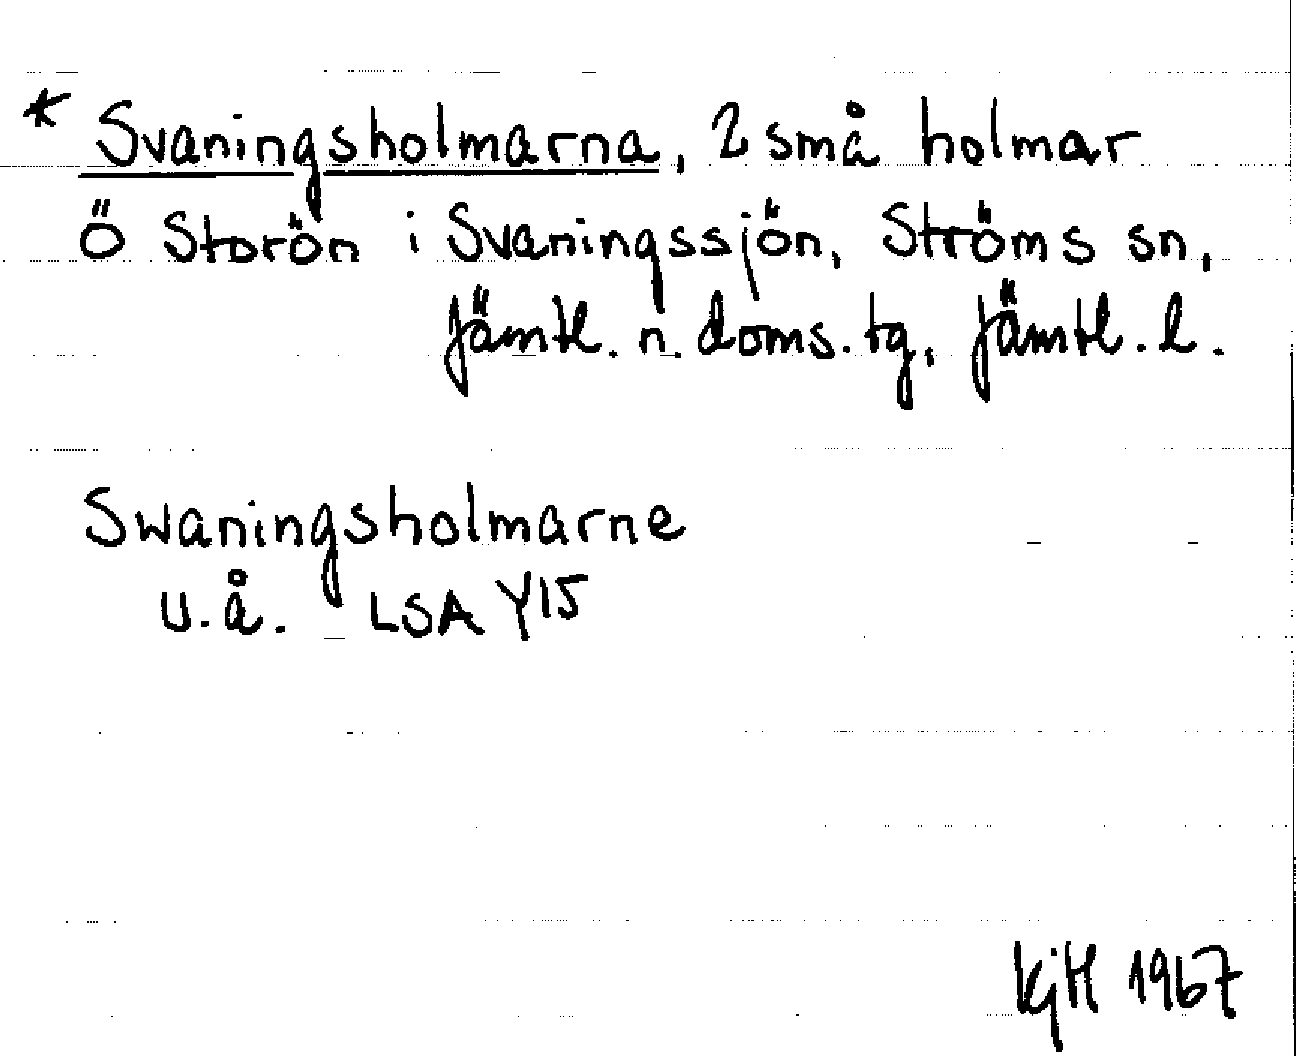 * Svaningsholmarna, 2 små holmar
Ö Storön i Svaningssjön, Ströms sn,
Jämtl. n. doms. tg, Jämtl. l.
Swaningsholmarne
U.å. LSA Y15
KjH 1967